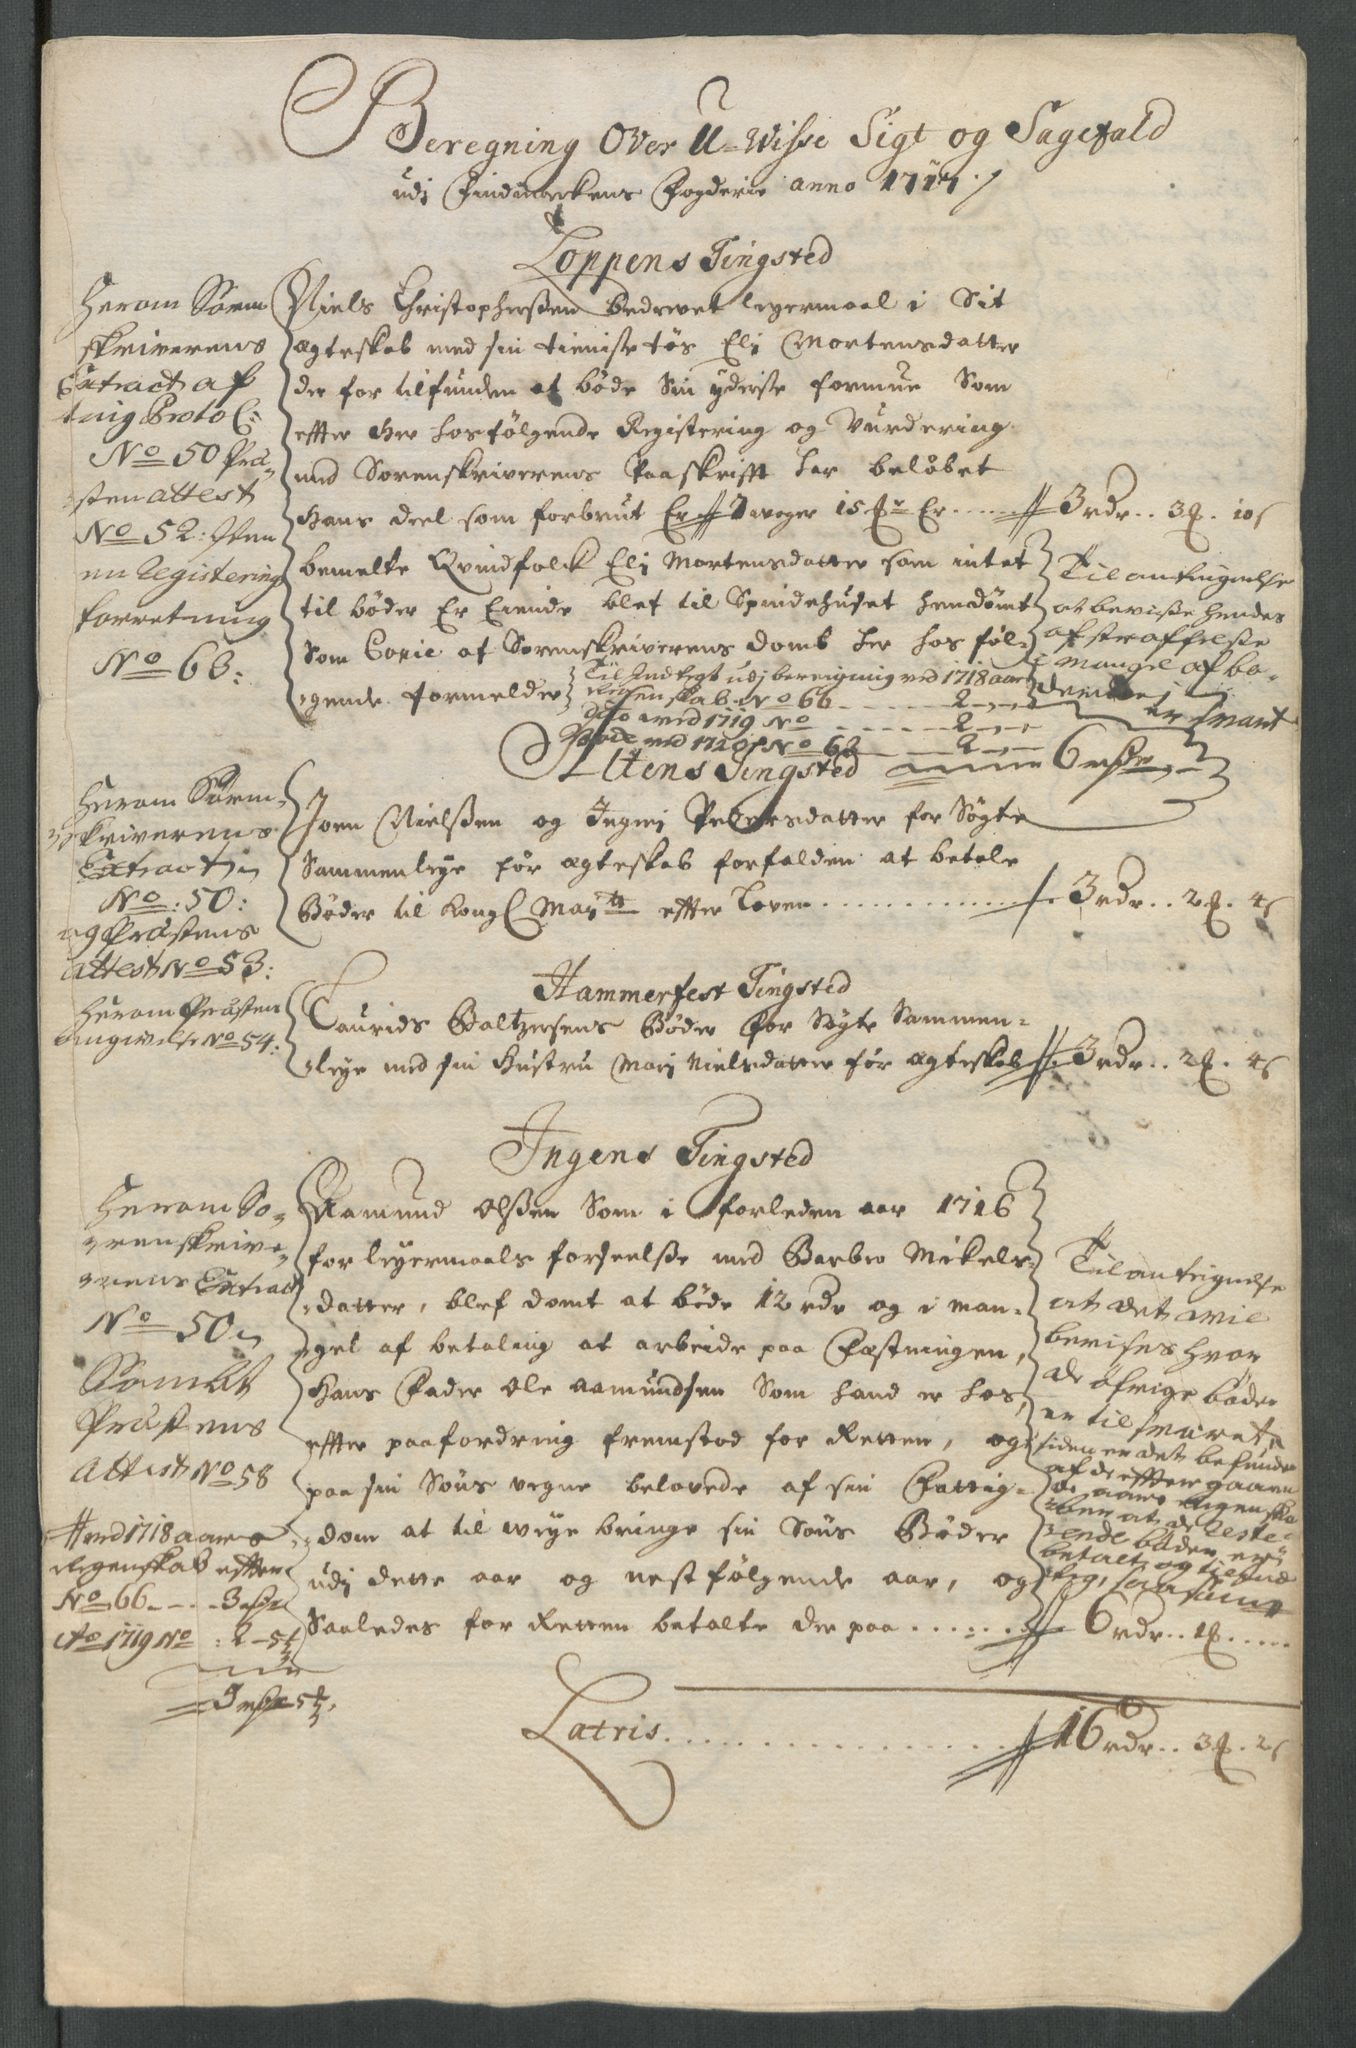 Beregning Over U-Wisse Sigt og Sagefald
udj Findmarckens Fogderie anno 1717 /
Loppens Tingsted
Herom Soren
skriverens
Extract af
ting Protoc:
No 50 Præ-
sten attest
No 52: Item
en Registering
forretning
No 63:
Niels Christophersen bedrevet leyermaal i Sit
ægteskab med sin tieniste tøs Eli Mortensdatter
der for tilfunden at bøde Sin yderste formue Som
effter her hosfølgende Registering og Vurdering
med Sorenskriverens Paaskrifft har beløbet
hans deel som forbrut Er // 7 woger 15 Er // 3 rdr .. 3 . 10 s
bemelte Qvindfolck Eli Mortensdatter som intet
til bøder Er Eiende blef til Spindehuset hendømt
Som Copie af Sorenskriverens domb her hos føl-
gende formelder
Til Indtegt udj beregning ved 1718 aars
Regenskab No 66 - - - 2
dito ved 1719 No - - - 2
ved 1720 No 62 - - 2
6 rdr
Til antegnelse
at bevisse hendes
afstraffelse
i mangel af bø-
der
er svart
Altens Tingsted
Herom Soren-
skriverens
Extract
No: 50:
og Præstens
attest No 53:
Joen Nielssen og Ingeri Pedersdatter for Søgte
Sammenleye før ægteskab forfalden at betale
Bøder til Kongl Mayts effter Loven 3 rdr .. 2 . 4 s
Hammerfest Tingsted
Herom Præsten
Angivelse No 54:
Laurids Baltzersens Bøder for Søgte Sammen-
leye med sin Hustru Mari Nielsdatter før ægteskab // 3 rdr .. 2 . 4 s
Ingens Tingsted
Herom So-
renskrive-
rens Extract
No 50
Sambt
Præstens
attest No 58
// ved 1718 aars
Regenskab effter
No 66 - - 3
Ao 1719 No : 2 - 5 1/3
5 1/3
Aamund Olssen Som i forleden aar 1716
for leyermaals forseelsse med Barbro Mickels-
datter, blef domt at bøde 12 rdr og i man-
gel af betaling at arbeide paa Fæstningen,
Hans Fader Ole Aamundsen Som hand er hos,
effter paafordring fremstod for Retten, og
paa sin Søns vegne belovede af sin Fattig-
dom at til weye bringe sin Søns Bøder
udj dette aar og nestfølgende aar, og
Saaledes for Retten betalte der paa 6 rdr .. 1
Til antegnelse
at det vil
bevises hvor
de øfrige bøder
er til svaret
siden er det befunden
af de effter gaaen
de aars Regenska
ber at de Reste-
rende bøder er
betalt og til Ind
tegt
Latris // 16 rdr .. 3 . 2 s